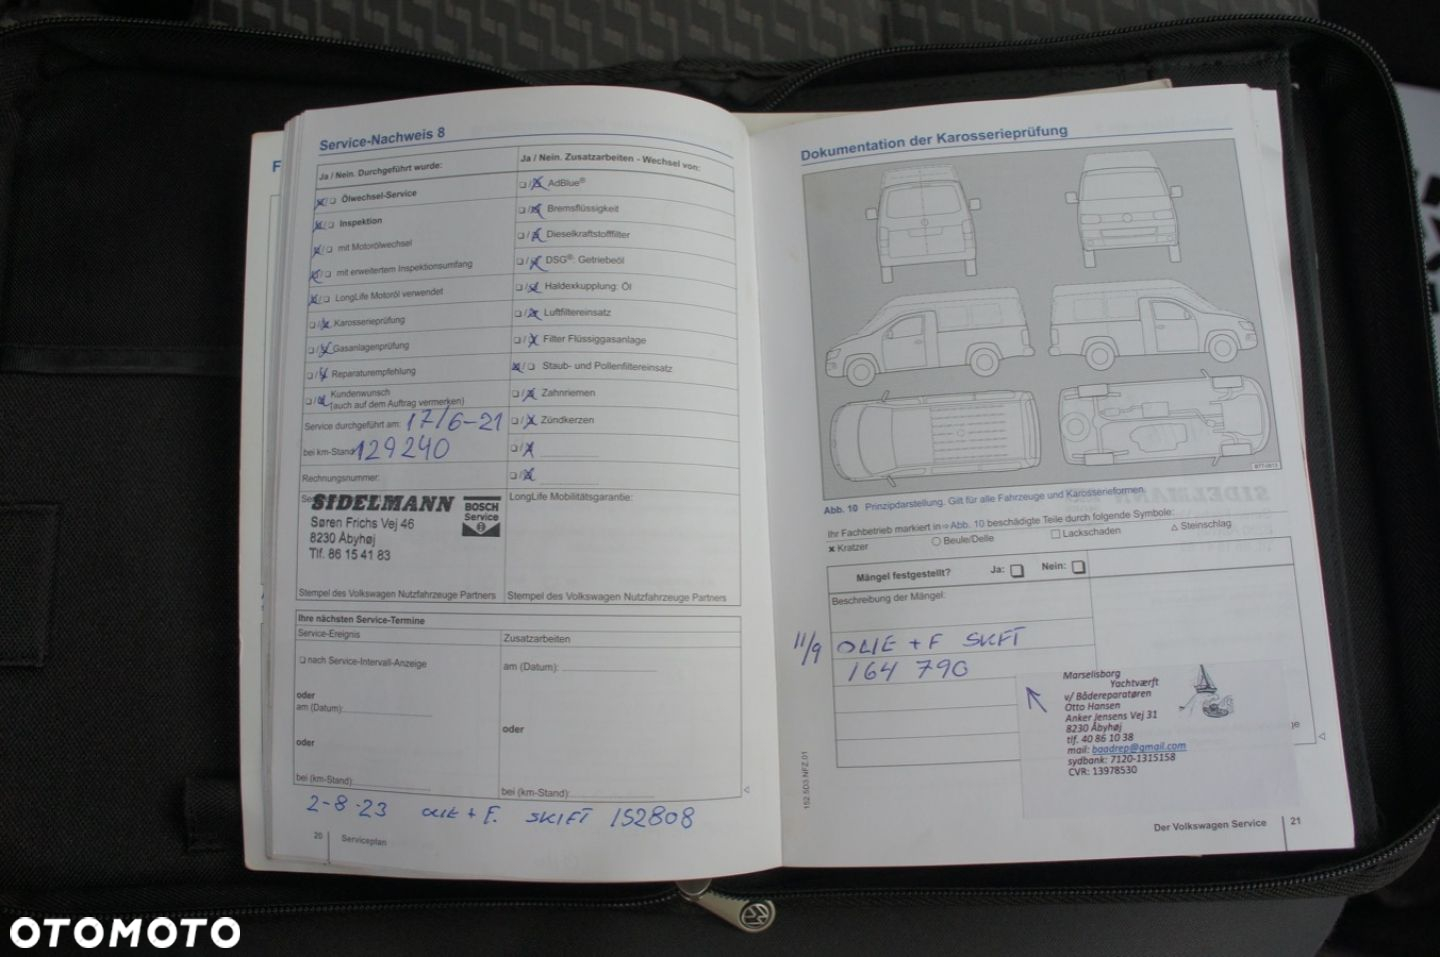 Service-Nachweis 8
Ja / Nein. Durchgeführt wurde:
Ölwechsel-Service
Inspektion
mit Motorölwechsel
mit erweitertem Inspektionsumfang
LongLife Motoröl verwendet
Karosserieprüfung
Gasanlagenprüfung
Reparaturempfehlung
Kundenwunsch
(auch auf dem Auftrag vermerken)
Service durchgeführt am: 17/6-21
bei km-Stand: 129240
Rechnungsnummer:
SIDELMANN
Søren Frichs Vej 46
8230 Åbyhøj
Tlf. 86 15 41 83
BOSCH
Service
Stempel des Volkswagen Nutzfahrzeuge Partners
Ja / Nein. Zusatzarbeiten - Wechsel von:
AdBlue®
Bremsflüssigkeit
Dieselkraftstofffilter
DSG®: Getriebeöl
Haldexkupplung: Öl
Luftfiltereinsatz
Filter Flüssiggasanlage
Staub- und Pollenfiltereinsatz
Zahnriemen
Zündkerzen
LongLife Mobilitätsgarantie:
Stempel des Volkswagen Nutzfahrzeuge Partners
Ihre nächsten Service-Termine
Service-Ereignis
nach Service-Intervall-Anzeige
oder
am (Datum):
oder
bei (km-Stand):
Zusatzarbeiten
am (Datum):
oder
bei (km-Stand):
2-8-23 OLIE + F. SKIFT 152808
20
Serviceplan
Dokumentation der Karosserieprüfung
B7T-0613
Abb. 10 Prinzipdarstellung. Gilt für alle Fahrzeuge und Karosserieformen.
Ihr Fachbetrieb markiert in ⇨ Abb. 10 beschädigte Teile durch folgende Symbole:
Kratzer
Beule/Delle
Lackschaden
Steinschlag
Mängel festgestellt? Ja: Nein:
Beschreibung der Mängel:
11/9 OLIE + F SKIFT
164 790
Marselisborg
Yachtværft
v/ Bådereparatøren
Otto Hansen
Anker Jensens Vej 31
8230 Åbyhøj
tlf. 40 86 10 38
mail: baadrep@gmail.com
sydbank: 7120-1315158
CVR: 13978530
152.5D3.NFZ.01
Der Volkswagen Service
21
OTOMOTO